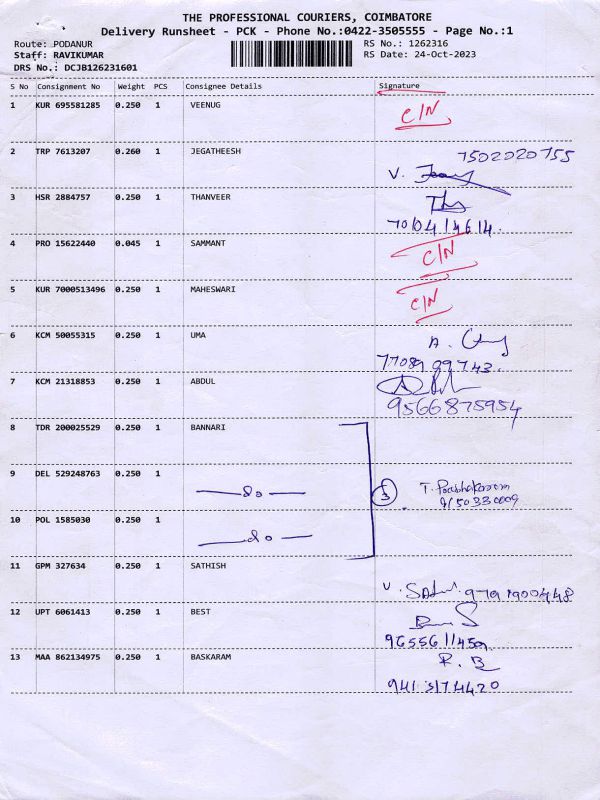 THE PROFESSIONAL COURIERS, COIMBATORE
Delivery Runsheet - PCK - Phone No.:0422-3505555 - Page No.:1
Route: PODANUR RS No.: 1262316
Staff: RAVIKUMAR RS Date: 24-Oct-2023
DRS No.: DCJB126231601
S No Consignment No Weight PCS Consignee Details Signature
1 KUR 695581285 0.250 1 VEENUG C/N
2 TRP 7613207 0.260 1 JEGATHEESH 7502020755
V.
3 HSR 2884757 0.250 1 THANVEER
7010414614.
4 PRO 15622440 0.045 1 SAMMANT C/N
5 KUR 7000513496 0.250 1 MAHESWARI C/N
6 KCM 50055315 0.250 1 UMA A.
7708999743.
7 KCM 21318853 0.250 1 ABDUL
9566875954
8 TDR 200025529 0.250 1 BANNARI
9 DEL 529248763 0.250 1 do 3 T.
10 POL 1585030 0.250 1 do
11 GPM 327634 0.250 1 SATHISH
V.
12 UPT 6061413 0.250 1 BEST
13 MAA 862134975 0.250 1 BASKARAM R. B